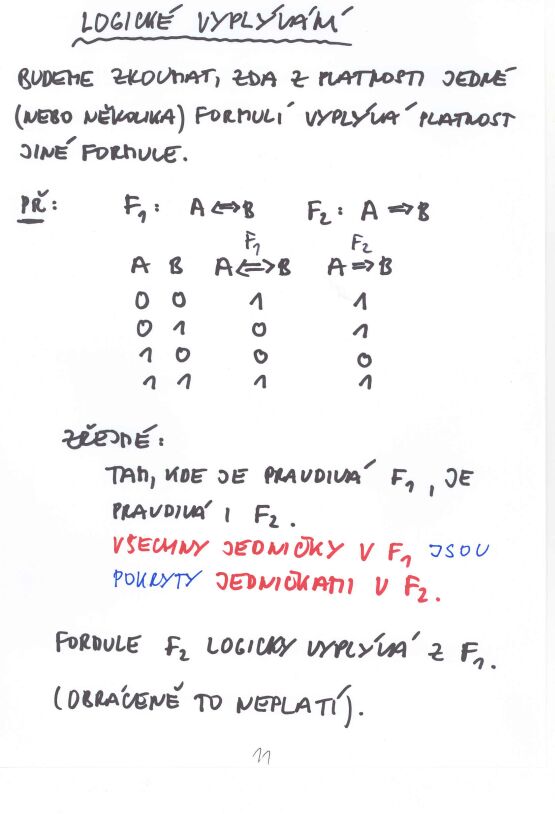 LOGICKÉ VYPLÝVÁNÍ
BUDEME ZKOUMAT, ZDA Z PLATNOSTI JEDNÉ
(NEBO NĚKOLIKA) FORMULÍ VYPLÝVÁ PLATNOST
JINÉ FORMULE.
PŘ: F₁: A ⇔ B F₂: A ⇒ B
F₁ F₂
A B A ⇔ B A ⇒ B
0 0 1 1
0 1 0 1
1 0 0 0
1 1 1 1
ZŘEJMÉ:
TAM, KDE JE PRAVDIVÁ F₁, JE
PRAVDIVÁ I F₂.
VŠECHNY JEDNIČKY V F₁ JSOU
POKRYTY JEDNIČKAMI V F₂.
FORMULE F₂ LOGICKY VYPLÝVÁ Z F₁.
(OBRÁCENĚ TO NEPLATÍ).
11